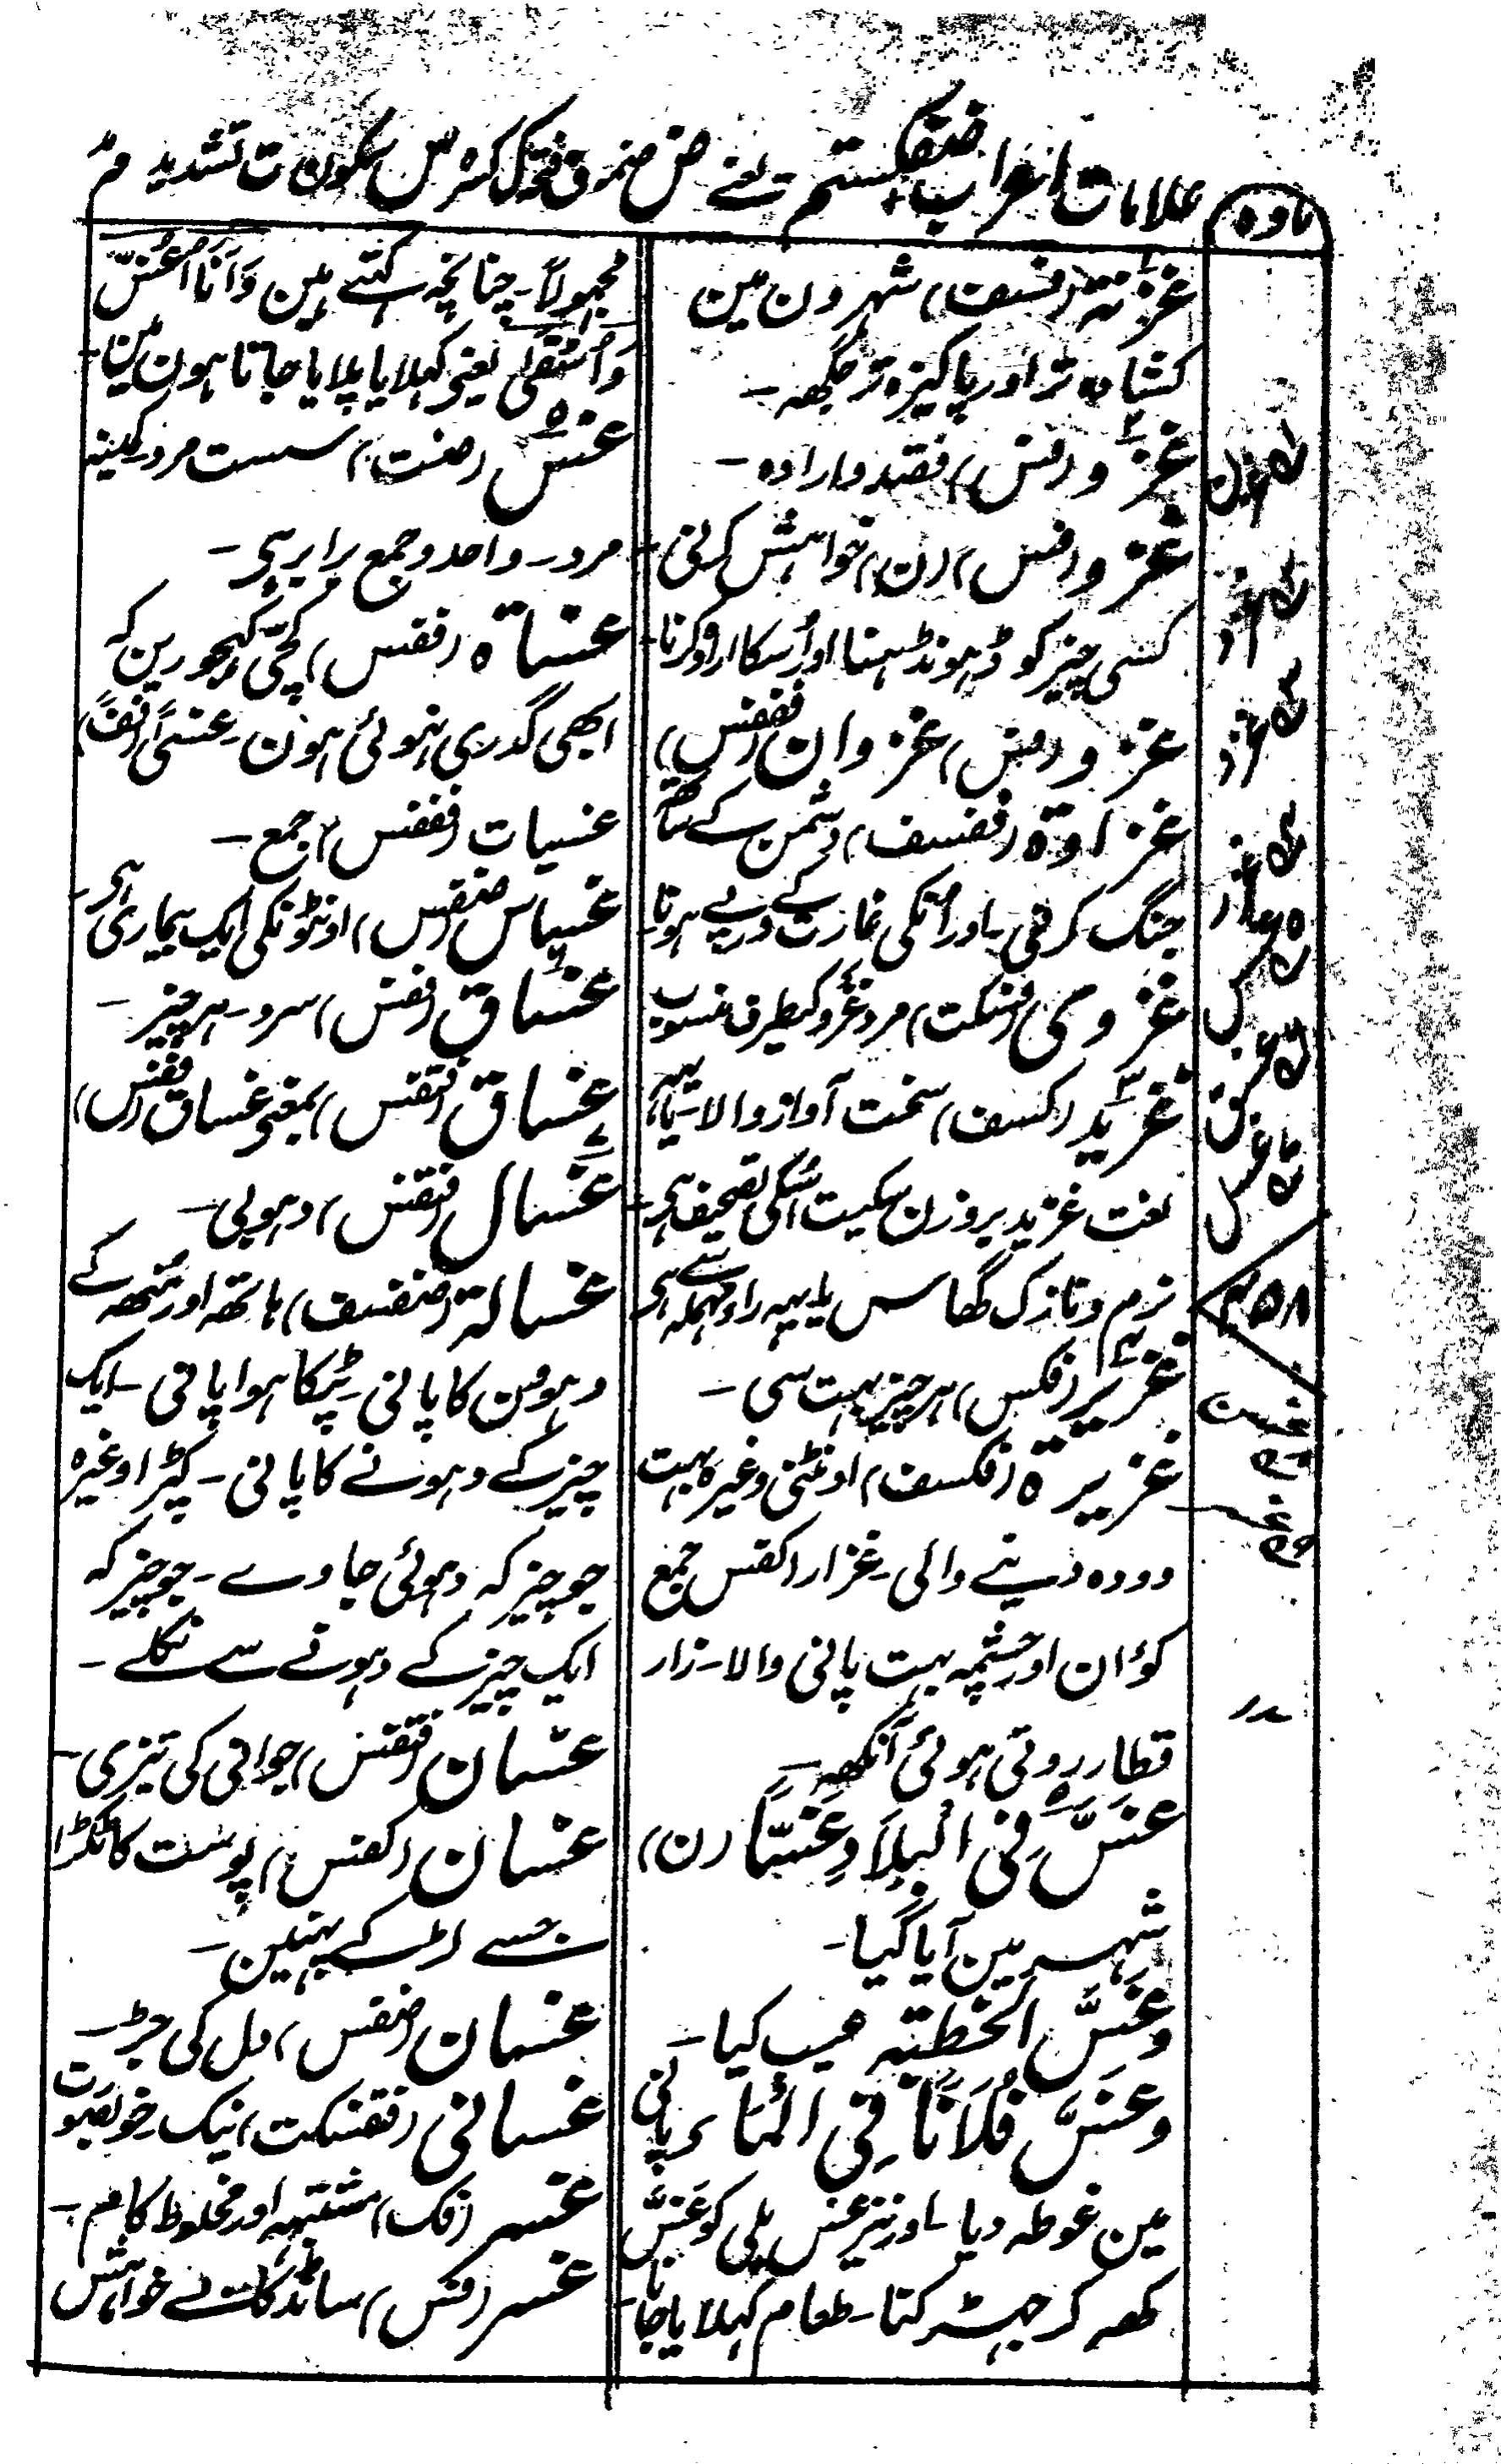 علامات اعراب ضفکستم یعنے ض ضمہ ف فتحہ ک کسرہ س سکون ت تشدید م مد
مادہ
غزّتہ (فسف) شہرون مین
کشادہ تر اور پاکیزہ تر جگہہ ۔
غزو (فس) قصد و ارادہ ۔
غزو (فس) (ن) خواہش کرنی ۔
کسی چیز کو ڈہونڈہنا اور اُسکا ارادہ کرنا ۔
غزو (فس) غزوان (ففس)
غزاوۃ (ففسف) دشمن کے ساتھ
جنگ کرنی ۔ اور اُنکی غارت کے درپے ہونا ۔
غزوی (فسکت) مرد غزو کیطرف منسوب
غزید (کسف) سخت آواز والا ۔ یا یہہ
لغت غزید بروزن سکیت اُسکی تصحیف ہی ۔
نرم و نازک گھاس یا یہہ راء مہملہ سے ہی
غزیر (فکس) ہر چیز بہت سی ۔
غزیرۃ (فکسف) اونٹنی وغیرہ بہت
دودہ دینے والی ۔ غزار (کفس) جمع
کوٗان اور چشمہ بہت پانی والا ۔ زار
قطار روتی ہوئی آنکھہ ۔
غَسَّ فِی الْبِلَادِ غَسًّا (ن)
شہر مین آیا گیا ۔
وغَسَّ الخطبۃ عیب کیا ۔
وغَسَّ فُلَانًا فِی الْمَاءِ پانی
مین غوطہ دیا ۔ اور نیز غس بلی کو غَسَّ
کھہ کر جہڑکنا ۔ طعام کہلایا جانا
مجہولًا ۔ چنانچہ کہتے ہین وَاَنَا اُغَسُّ
وَاُسْقٰی یعنی کہلایا پلایا جاتا ہون مین ۔
غس (ضت) سست مرد کمینہ
مرد ۔ واحد و جمع برابر ہی ۔
غساۃ (ففس) کچّی کہجورین کہ
ابھی گدری نہوئی ہون ۔ غسًی (فف)
غسیات (ففس) جمع ۔
غساس (ضفس) اونٹونکی ایک بیماری ہی ۔
غساق (ففس) سرد ۔ ہر چیز ۔
غساق (فتفس) بمعنی غساق (ففس)
غسال (فتفس) دہوبی ۔
غسالۃ (ضفسف) ہاتھہ اور منھہ کے
دہوون کا پانی ۔ ٹپکا ہوا پانی ۔ ایک
چیز کے دہونے کا پانی ۔ کپڑا وغیرہ
جو چیز کہ دہوئی جاوے ۔ جو چیز کہ
ایک چیز کے دہونے سے نکلے ۔
غسان (فتفس) جوانی کی تیزی ۔
غسان (کفس) پوست کا ٹکڑا
جسے لڑکے پہنین ۔
غسان (ضفس) دل کی جڑ ۔
غسانی (ففسکت) نیک خوبصورت
غسر (فک) مشتبہہ اور مخلوط کام ۔
غسر (فس) سانڈ کا بے خواہش
۴۵۸